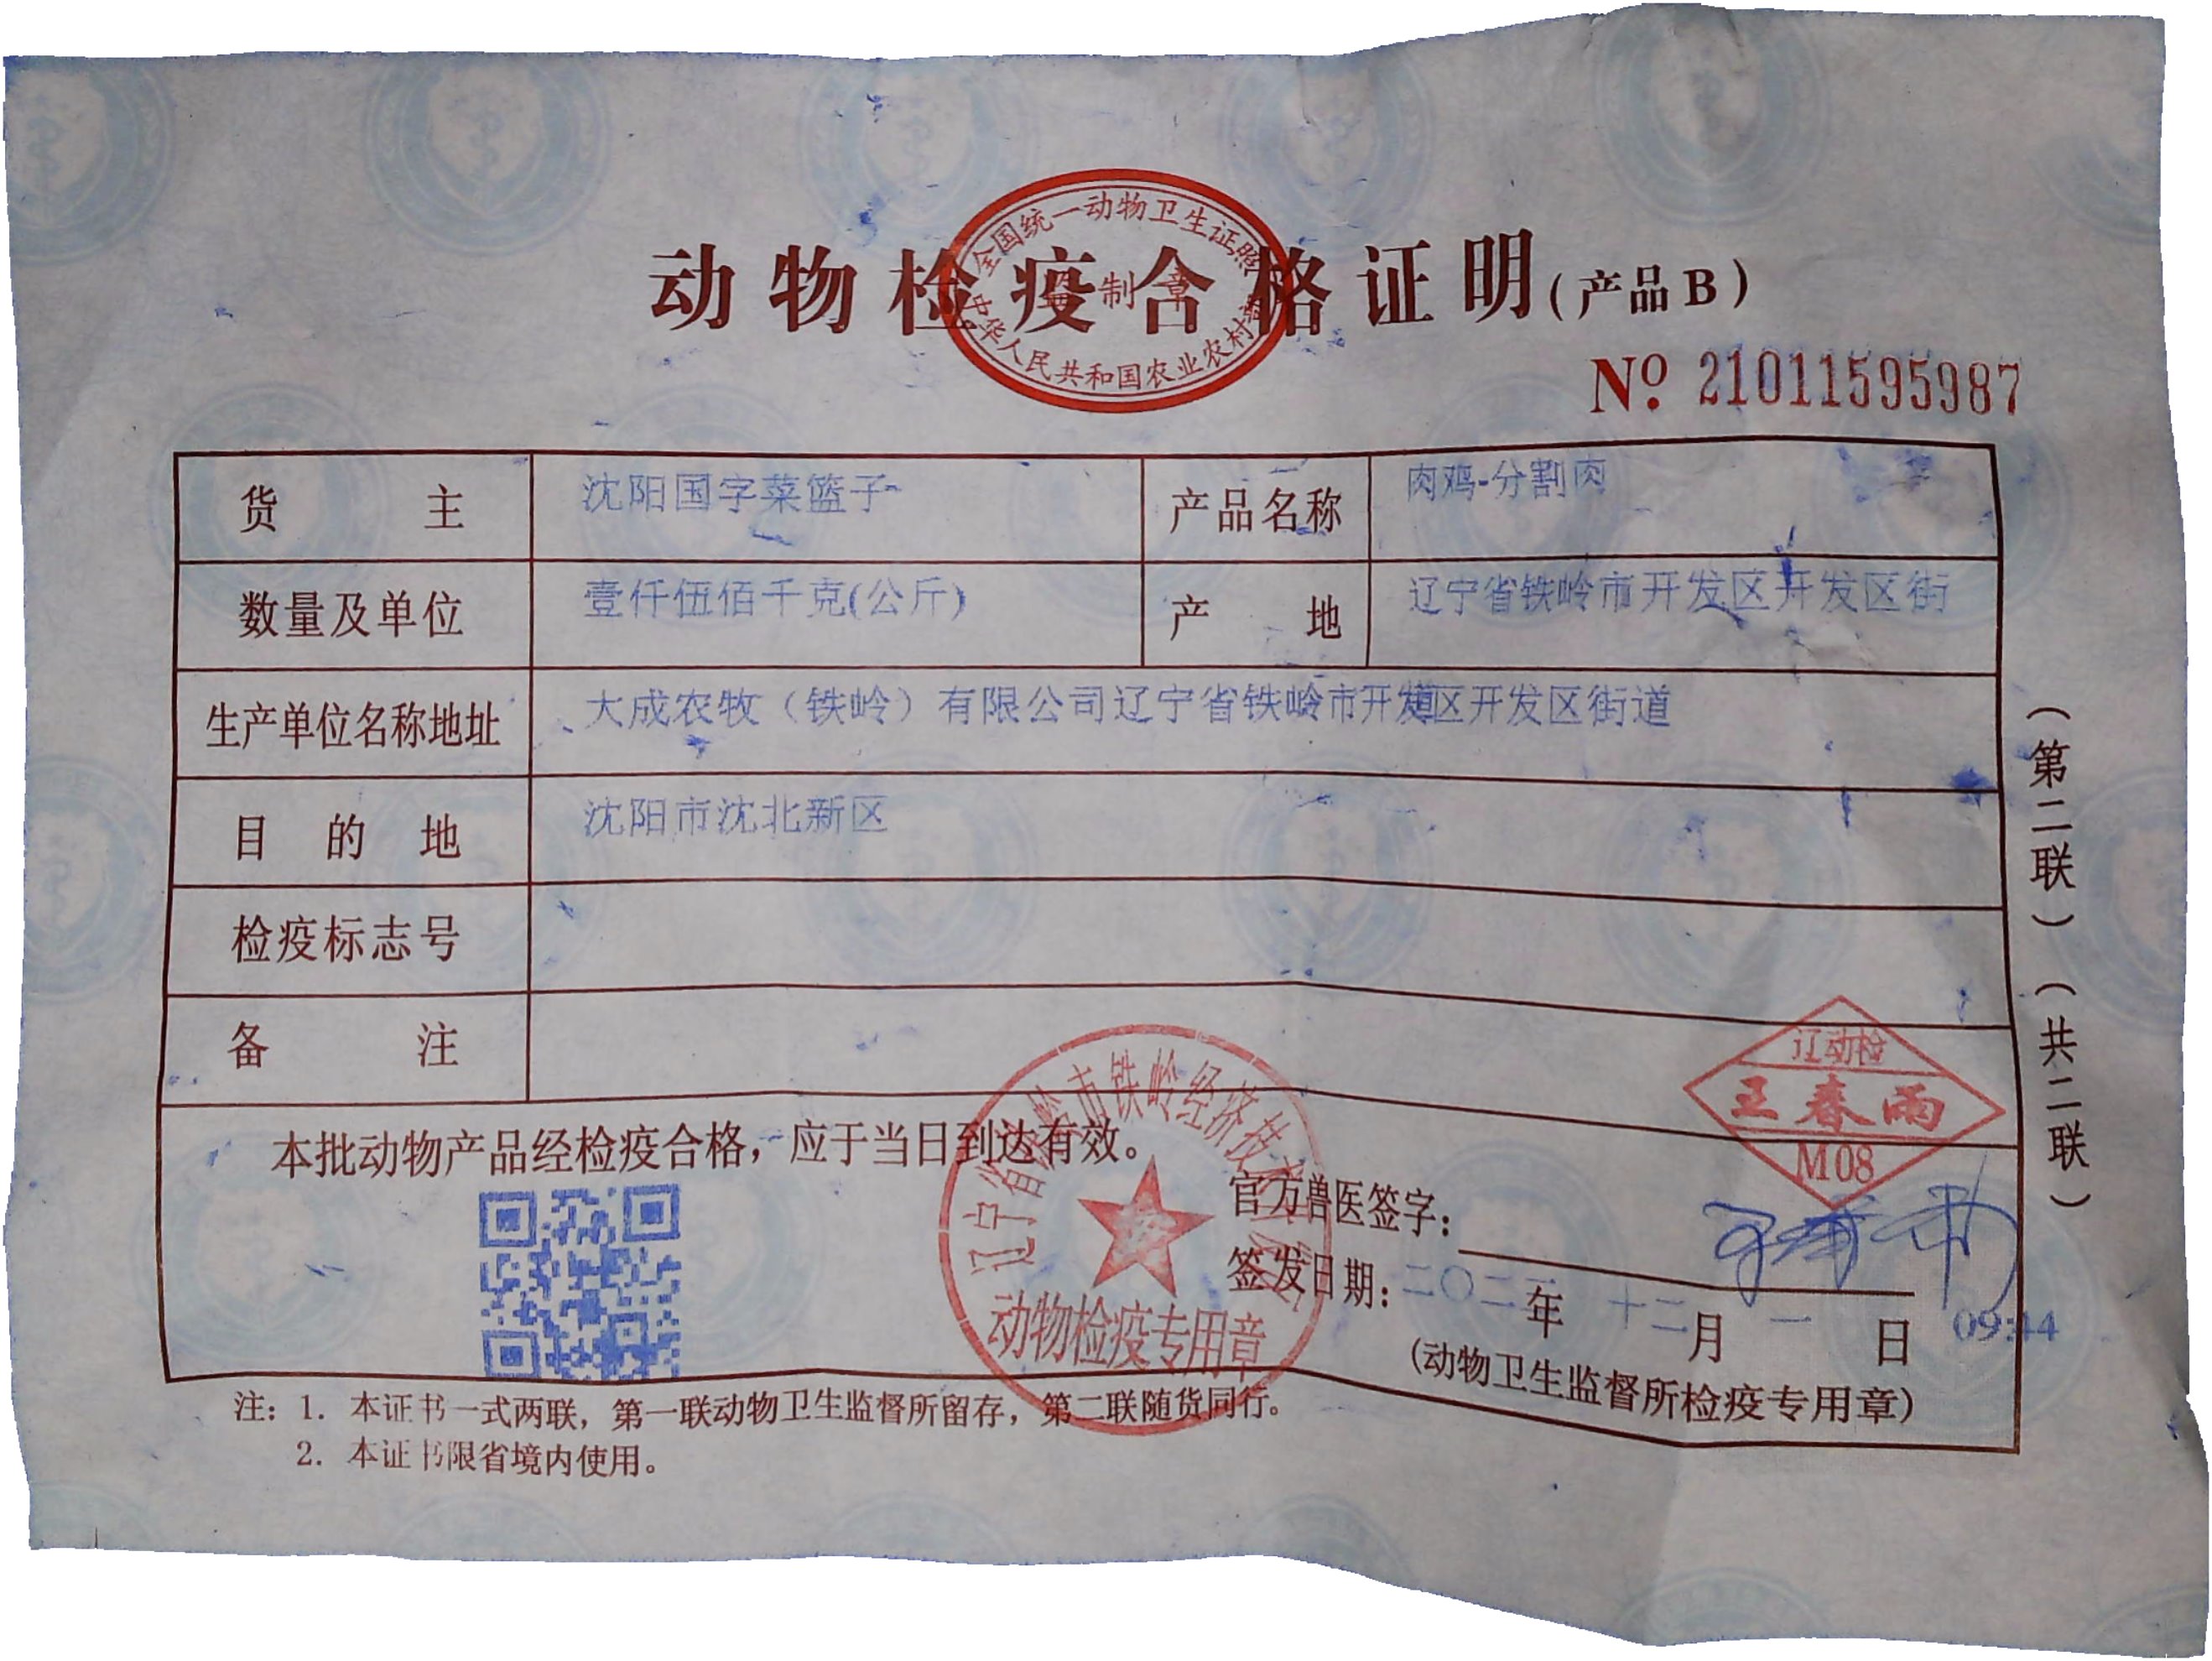 全国统一动物卫生证照
动物检疫合格证明(产品B)
监制章
中华人民共和国农业农村部
№ 21011595987
货主 沈阳国字菜篮子 产品名称 肉鸡-分割肉
数量及单位 壹仟伍佰千克(公斤) 产地 辽宁省铁岭市开发区开发区街
生产单位名称地址 大成农牧（铁岭）有限公司辽宁省铁岭市开发区开发区街道
目的地 沈阳市沈北新区
检疫标志号
备注
(第二联)(共二联)
辽动检
王春雨
M08
本批动物产品经检疫合格，应于当日到达有效。
官方兽医签字:
签发日期: 二〇二 年 十二月 一 日 09:44
辽宁省铁岭市铁岭经济技
动物检疫专用章
(动物卫生监督所检疫专用章)
注: 1. 本证书一式两联，第一联动物卫生监督所留存，第二联随货同行。
2. 本证书限省境内使用。